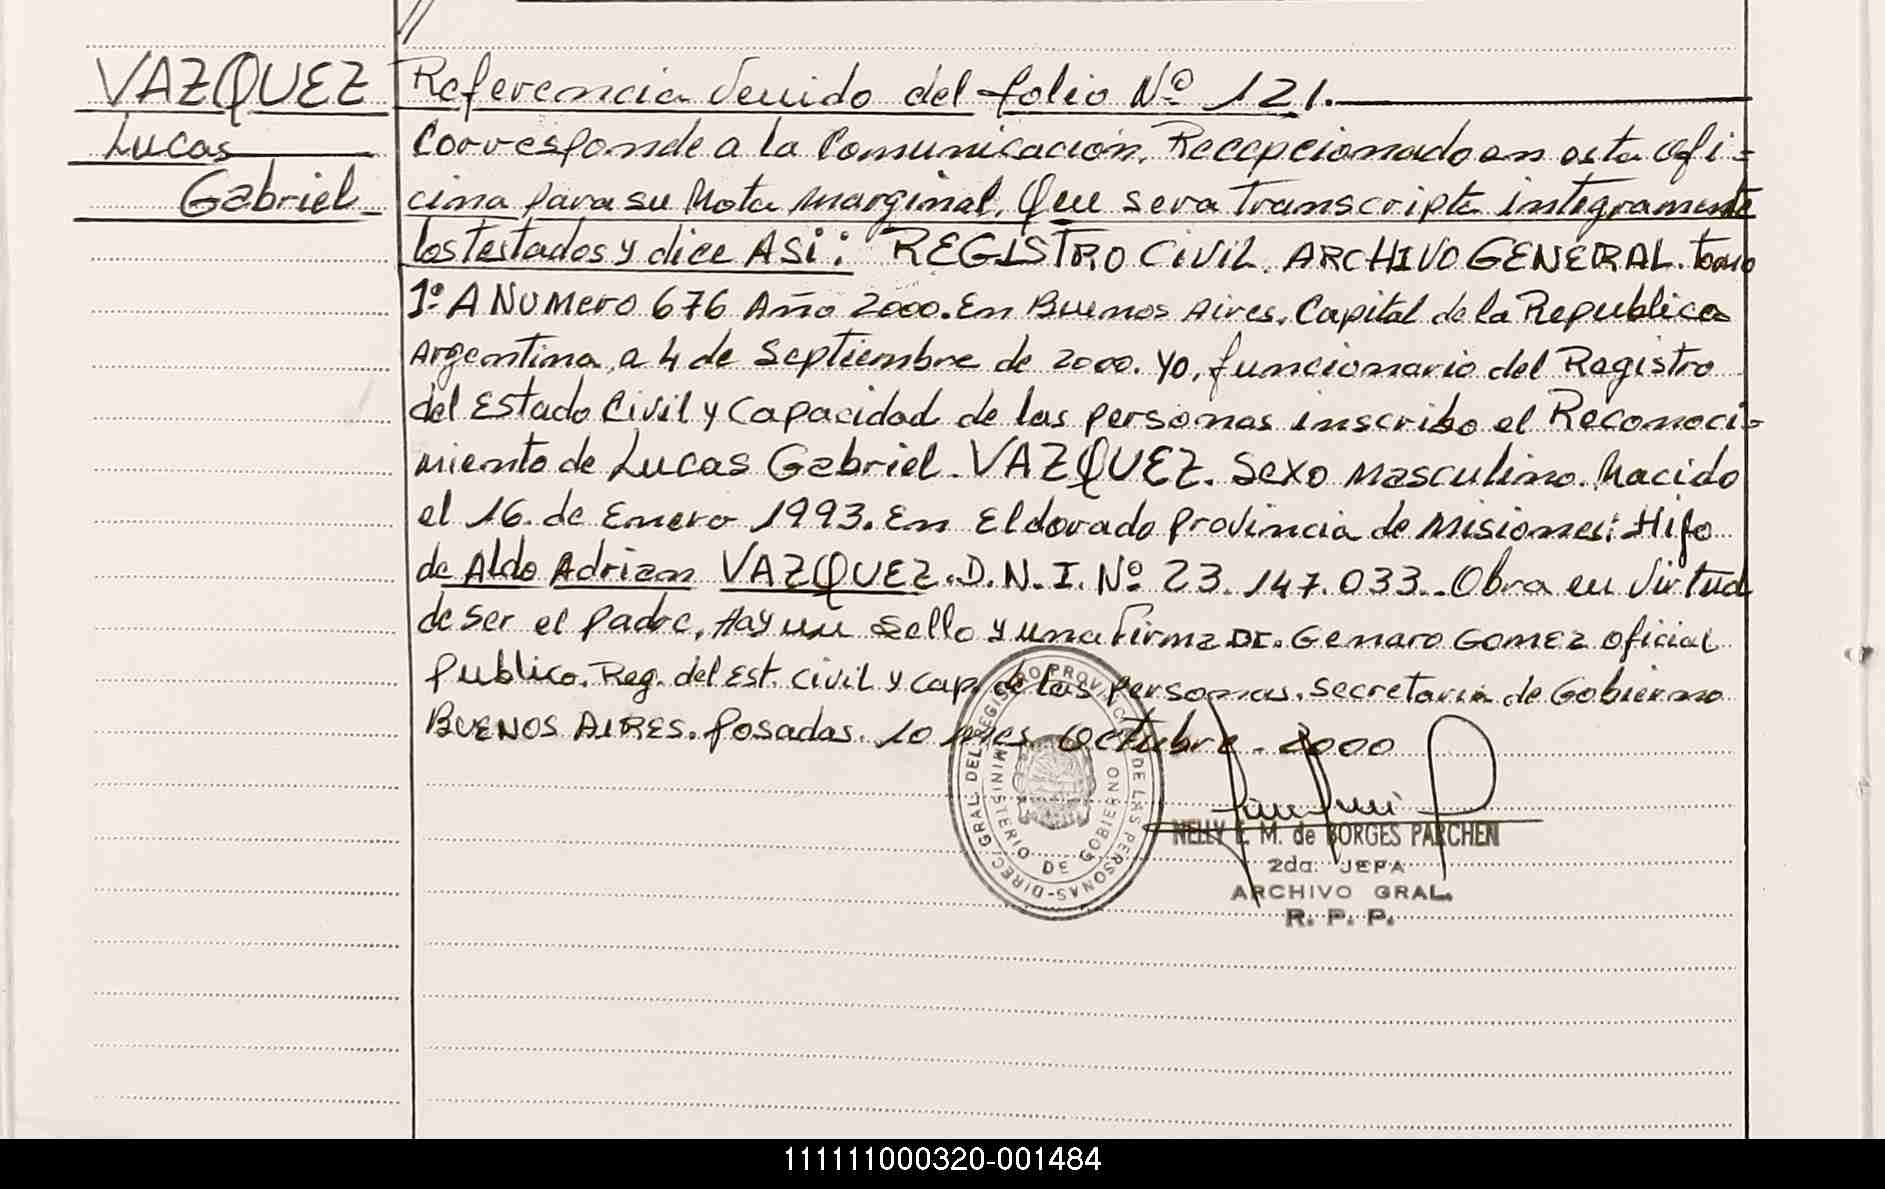 VAZQUEZ
Lucas
Gabriel
Referencia Venido del folio Nº 121.
Corresponde a la Comunicación. Recepcionado en esta ofi=
cina para su Nota marginal. Que sera Transcripta integramente
los testados y dice ASI: REGISTRO CIVIL. ARCHIVO GENERAL. tomo
1º A NUMERO 676 Año 2000. En Buenos Aires, Capital de la Republica
Argentina, a 4 de Septiembre de 2000. Yo, funcionario del Registro
del Estado Civil y Capacidad de las personas inscribo el Reconoci=
miento de Lucas Gabriel. VAZQUEZ. Sexo masculino. Nacido
el 16. de Enero 1993. En Eldorado provincia de Misiones: Hijo
de Aldo Adrian VAZQUEZ. D.N.I. Nº 23.147.033.. Obra en Virtud
de ser el padre, Hay un Sello y una firma Dr. Genaro Gomez oficial
publico. Reg. del Est. civil y cap. de las personas. Secretaria de Gobierno
BUENOS AIRES. Posadas. 10 mes Octubre. 2000
DIREC. GRAL. DEL REGISTRO PROVINCIAL DE LAS PERSONAS
MINISTERIO DE GOBIERNO
NELLY E. M. de BORGES PARCHEN
2da. JEFA
ARCHIVO GRAL.
R. P. P.
111111000320-001484